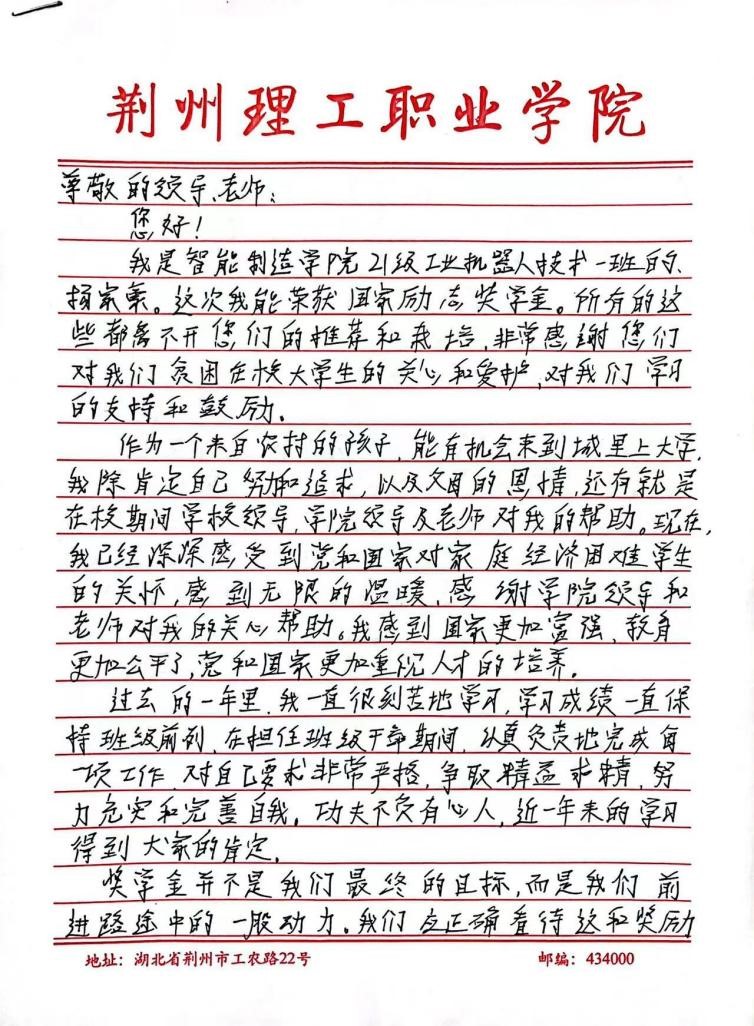 荆州理工职业学院
尊敬的领导、老师:
您好!
我是智能制造学院21级工业机器人技术一班的、
杨家豪。这次我能荣获国家励志奖学金。所有的这
些都离不开您们的推荐和栽培,非常感谢您们
对我们贫困在校大学生的关心和爱护,对我们学习
的支持和鼓励。
作为一个来自农村的孩子,能有机会来到城里上大学,
我除肯定自己努力和追求,以及父母的恩情,还有就是
在校期间学校领导,学院领导及老师对我的帮助。现在,
我已经深深感受到党和国家对家庭经济困难学生
的关怀,感到无限的温暖,感谢学院领导和
老师对我的关心帮助。我感到国家更加富强,教育
更加公平了,党和国家更加重视人才的培养。
过去的一年里,我一直很刻苦地学习,学习成绩一直保
持班级前列,在担任班级干部期间,认真负责地完成每
一项工作,对自己要求非常严格,争取精益求精,努
力充实和完善自我。功夫不负有心人,近一年来的学习
得到大家的肯定。
奖学金并不是我们最终的目标,而是我们前
进路途中的一股动力。我们应正确看待这和奖励
地址:湖北省荆州市工农路22号
邮编:434000